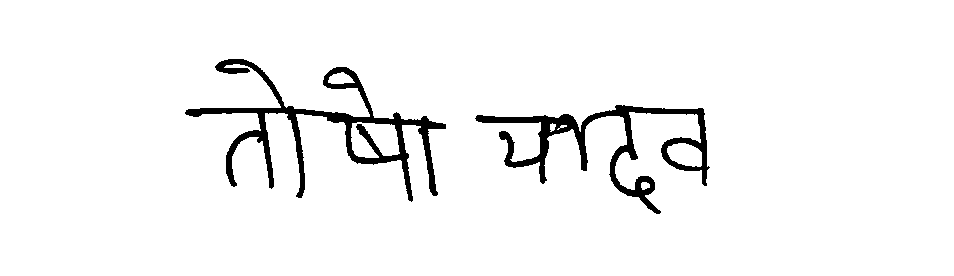 तोषो यादव